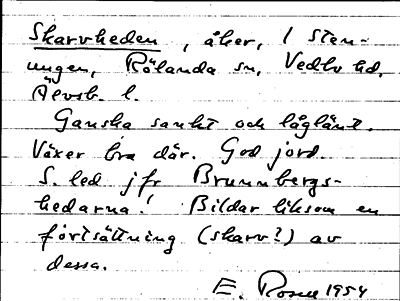 Skarvheden, åker, 1 Sten-
ungen, Rölanda sn, Vedbo hd.
Älvsb. l.
Ganska sankt och låglänt.
Växer bra där. God jord.
S. led jfr Brunnbergs-
hedarna! Bildar liksom en
fortsättning (skarv?) av
dessa.
E. 1954